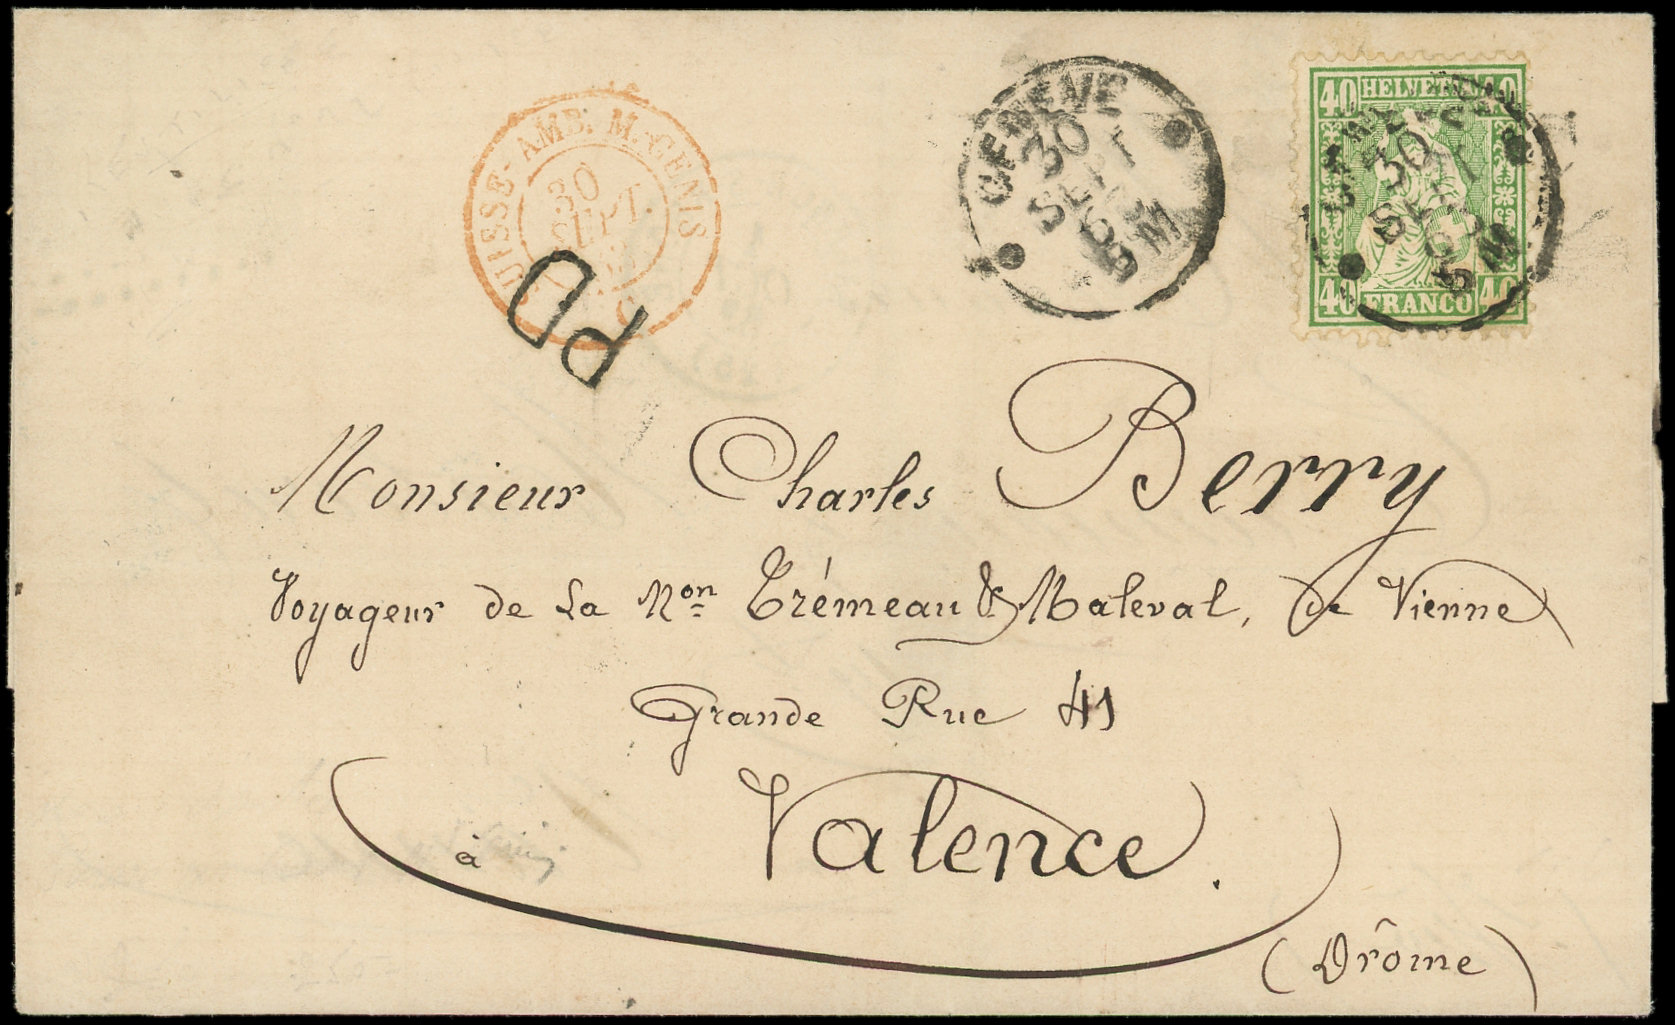 SUISSE - AMB. M. CENIS
30
SEPT.
PD
GENEVE
30
SEPT
63
5 M
40 HELVETIA 40
GENEVE
30
SEPT
63
5 M
40 FRANCO 40
Monsieur Charles Berry
Voyageur de La Mon Trémeau & Maleval, de Vienne
Grande Rue 41
à Valence.
(Drôme)